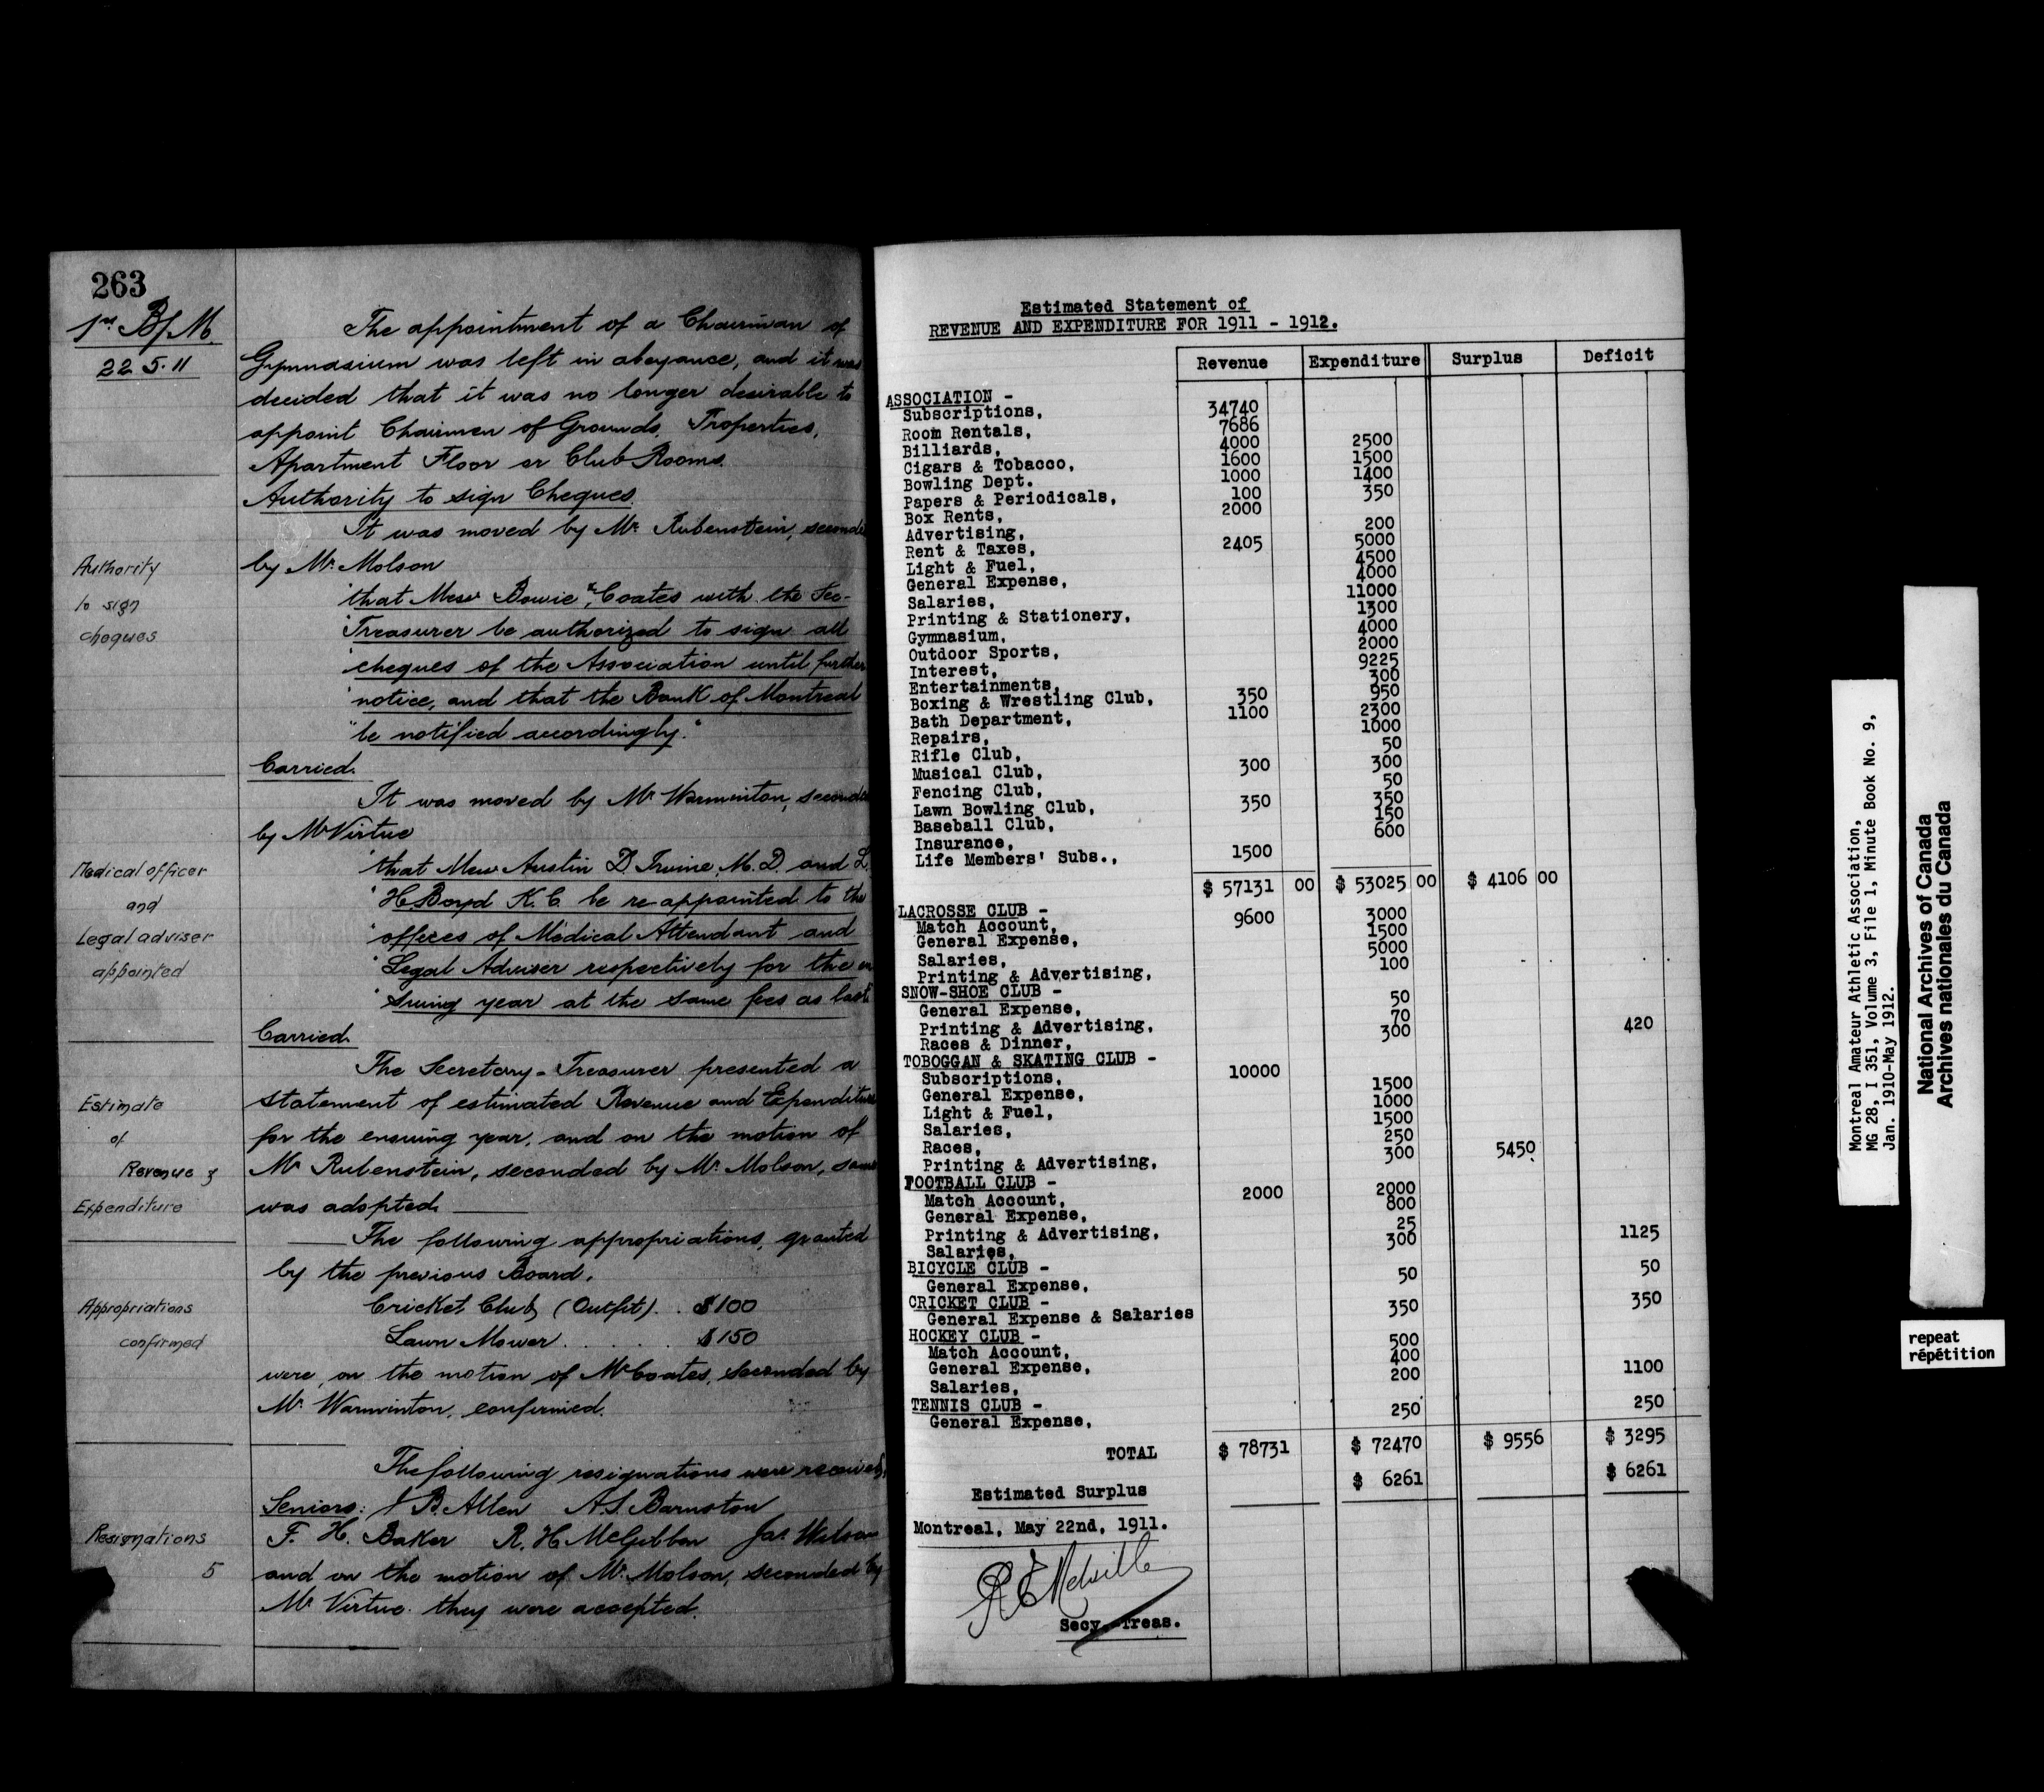 263
1st B/M.
22.5.11
The appointment of a Chairman of
Gymnasium was left in abeyance, and it was
decided that it was no longer desirable to
appoint Chairmen of Grounds, Properties,
Apartment Floor or Club Rooms.
Authority to sign Cheques.
It was moved by Mr. Rubenstein, seconded
Authority
to sign
cheques
by Mr. Molson
"that Messrs Bowie & Coates with the Sec-
"Treasurer be authorized to sign all
"cheques of the Association until further
"notice, and that the Bank of Montreal
"be notified accordingly."
Carried.
It was moved by Mr Warminton, seconded
by Mr Virtue
Medical officer
and
Legal adviser
appointed
"that Messrs Austin D. Irvine, M.D. and L.
"H. Boyd K.C. be re-appointed to the
"offices of Medical Attendant and
"Legal Adviser respectively for the en
"suing year at the same fees as last
Carried.
The Secretary-Treasurer presented a
Estimate
of
Revenue &
Expenditure
statement of estimated Revenue and Expenditure
for the ensuing year, and on the motion of
Mr Rubenstein, seconded by Mr. Molson, same
was adopted.
The following appropriations, granted
by the previous Board.
Appropriations
confirmed
Cricket Club (Outfit) . . $100
Lawn Mower . . . . . $150
were, on the motion of Mr Coates, seconded by
Mr. Warminton, confirmed.
The following resignations were received,
Seniors: J B. Allen A.S. Barnston
Resignations
5
F. H. Baker R. H. McGibbon Jas. Wilson
and on the motion of Mr. Molson, seconded by
Mr Virtue. they were accepted.
Estimated Statement of
REVENUE AND EXPENDITURE FOR 1911 - 1912.
Revenue Expenditure Surplus Deficit
ASSOCIATION -
Subscriptions, 34740
Room Rentals, 7686
Billiards, 4000 2500
Cigars & Tobacco, 1600 1500
Bowling Dept. 1000 1400
Papers & Periodicals, 100 350
Box Rents, 2000
Advertising, 200
Rent & Taxes, 2405 5000
Light & Fuel, 4500
General Expense, 4000
Salaries, 11000
Printing & Stationery, 1300
Gymnasium, 4000
Outdoor Sports, 2000
Interest, 9225
Entertainments, 300
Boxing & Wrestling Club, 350 950
Bath Department, 1100 2300
Repairs, 1000
Rifle Club, 50
Musical Club, 300 300
Fencing Club, 50
Lawn Bowling Club, 350 350
Baseball Club, 150
Insurance, 600
Life Members' Subs., 1500
$ 57131 00 $ 53025 00 $ 4106 00
LACROSSE CLUB -
Match Account, 9600 3000
General Expense, 1500
Salaries, 5000
Printing & Advertising, 100
SNOW-SHOE CLUB -
General Expense, 50
Printing & Advertising, 70
Races & Dinner, 300 420
TOBOGGAN & SKATING CLUB -
Subscriptions, 10000
General Expense, 1500
Light & Fuel, 1000
Salaries, 1500
Races, 250
Printing & Advertising, 300 5450
FOOTBALL CLUB -
Match Account, 2000 2000
General Expense, 800
Printing & Advertising, 25
Salaries, 300 1125
BICYCLE CLUB -
General Expense, 50 50
CRICKET CLUB -
General Expense & Salaries 350 350
HOCKEY CLUB -
Match Account, 500
General Expense, 400
Salaries, 200 1100
TENNIS CLUB -
General Expense, 250 250
TOTAL $ 78731 $ 72470 $ 9556 $ 3295
Estimated Surplus $ 6261 $ 6261
Montreal, May 22nd, 1911.
Secy.-Treas.
Montreal Amateur Athletic Association,
MG 28, I 351, Volume 3, File 1, Minute Book No. 9,
Jan. 1910-May 1912.
National Archives of Canada
Archives nationales du Canada
repeat
répétition